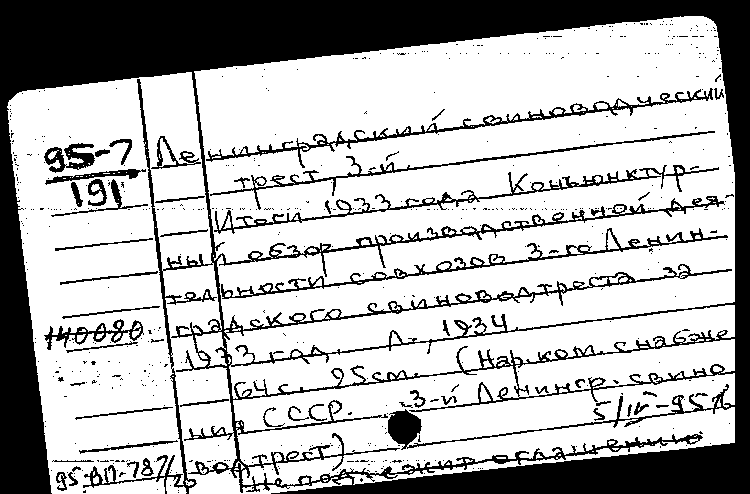 95-7
191
Ленинградский свиноводческий
трест, 3-й.
Итоги 1933 года Конъюнктур-
ный обзор производственной дея-
тельности совхозов 3-го Ленин-
140080
градского свиноводтреста за
1933 год. Л., 1934.
64 с. 95см. (Нар.ком. снабже
ния СССР. 3-й Ленингр. свино
водтрест).
5/IV-95
95-ВП-787/20
Не подлежит оглашению